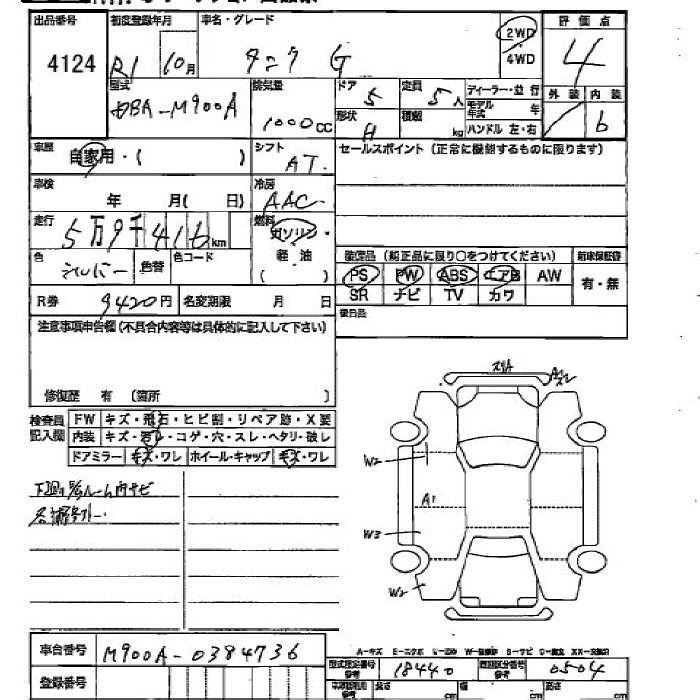 出品番号 初度登録年月 車名・グレード 評価点
4124 R1 10月 タンク G 2WD 4WD 4
型式 排気量 ドア 定員 ディーラー・並行 外装 内装
DBA-M900A 1000cc 5 5人 モデル年式 年 b
形状 H 積載 kg ハンドル 左・右
車歴 自家用・( ) シフト AT. セールスポイント (正常に機能するものに限ります)
車検 年 月( 日) 冷房 AAC
走行 5万9千416km 燃料 ガソリン・軽油 ( )
色 シルバー 色替 色コード
装備品 (純正品に限り○をつけてください) 新車保証書
PS PW ABS エアB AW 有・無
SR ナビ TV カワ
R券 9420円 名変期限 月 日 後日品
注意事項申告欄(不具合内容等は具体的に記入して下さい)
修復歴 有 (箇所 )
検査員記入欄 FW キズ・飛石・ヒビ割・リペア跡・X要
内装 キズ・汚レ・コゲ・穴・スレ・ヘタリ・破レ
ドアミラー キズ・ワレ ホイール・キャップ キズ・ワレ
W2
A1
W3
W2
車台番号 M900A-0384736
登録番号
A-キズ E-エクボ U-凹み W-補修跡 S-サビ C-腐食 XX-交換済
型式指定番号 参考 18440 類別区分番号 参考 0504
長さ cm 幅 cm 高さ cm